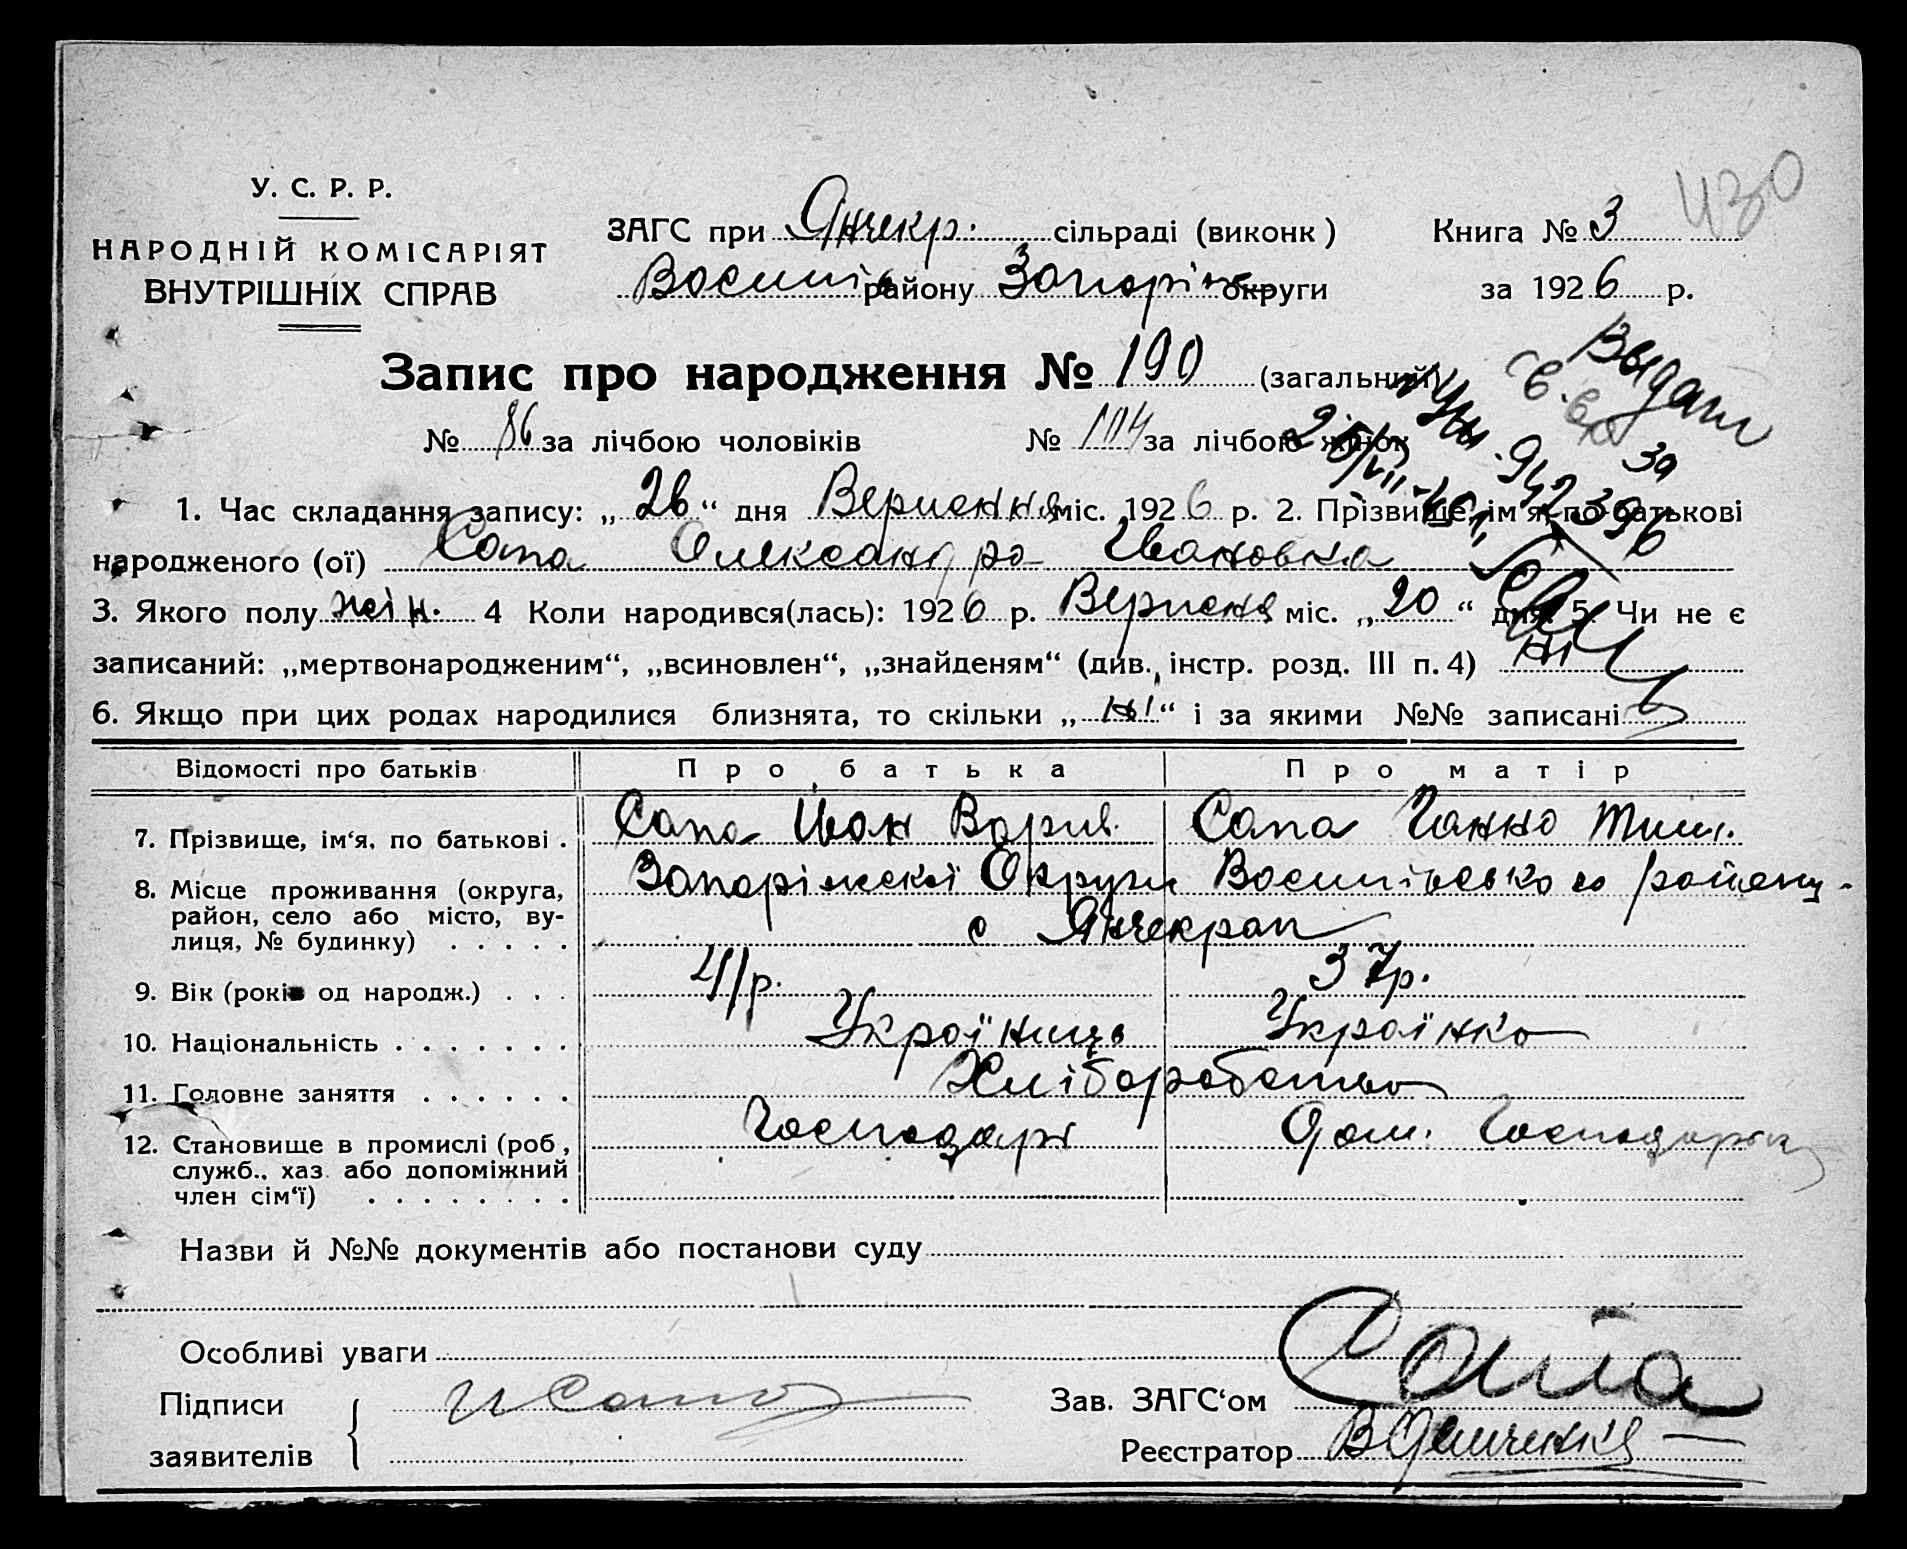 430
У. С. Р. Р.
НАРОДНІЙ КОМІСАРІЯТ
ВНУТРІШНІХ СПРАВ
ЗАГС при Янчекр. сільраді (виконк)
Книга № 3
району Запоріж округи
за 1926 р.
Запис про народження № 190 (загальний)
№ 86 за лічбою чоловіків № 104 за лічбою жінок
Выдан
за
942396
1. Час складання запису: „26“ дня Вересння міс. 1926 р. 2. Прізвище, ім'я, по-батькові
народженого (ої) Сапа Олександра Івановна
3. Якого полу жін. 4 Коли народився(лась): 1926 р. Вересня міс. „20“ дня. 5. Чи не є
записаний: „мертвонародженим“, „всиновлен“, „знайденям“ (див. інстр. розд. III п. 4) ні
6. Якщо при цих родах народилися близнята, то скільки „ні“ і за якими №№ записані
Відомості про батьків Про батька Про матір
7. Прізвище, ім'я, по батькові . Сапа Іван Сапа Ганна Тим.
8. Місце проживання (округа, район, село або місто, вулиця, № будинку) . . . . . Запоріжскої Округи району
с Янчекрак
9. Вік (років од народж.) . . . 41р. 37р.
10. Національність . . . . . . . Українць Українка
11. Головне заняття . . . . . . Хліборобство
12. Становище в промислі (роб., служб., хаз. або допоміжний член сім'ї) . . . . . . . Господарь Дом. Господарка
Назви й №№ документів або постанови суду
Особливі уваги
Підписи заявителів И Сапа
Зав. ЗАГС'ом Сапа
Реєстратор В Демченко